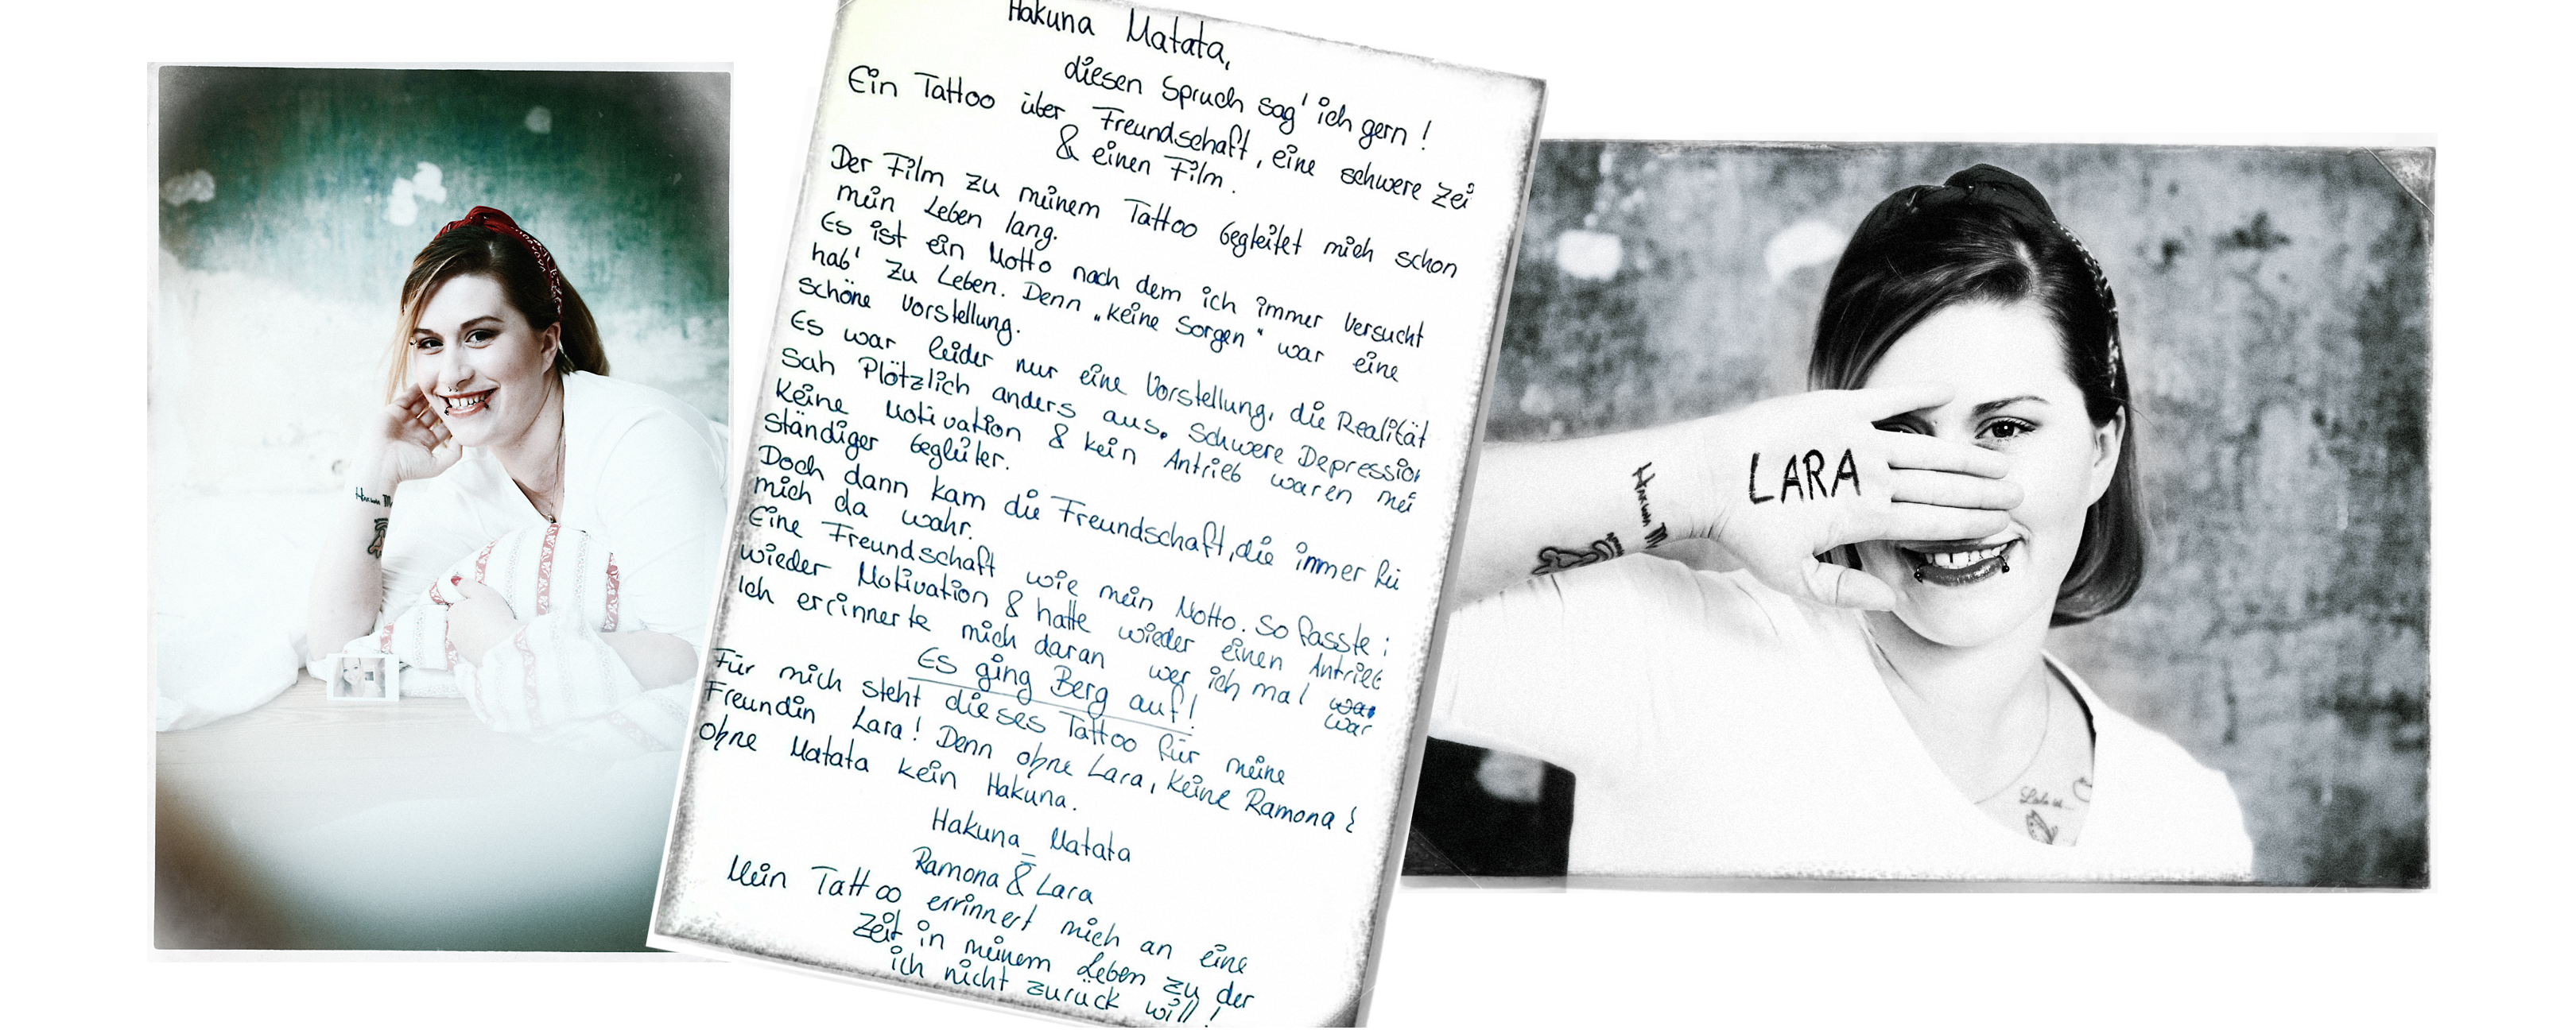 Hakuna Matata,
diesen Spruch sag' ich gern!
Ein Tattoo über Freundschaft, eine schwere Zei
& einen Film.
Der Film zu meinem Tattoo begleitet mich schon
mein Leben lang.
Es ist ein Motto nach dem ich immer versucht
hab' zu Leben. Denn „keine Sorgen“ war eine
schöne Vorstellung.
Es war leider nur eine Vorstellung, die Realität
sah Plötzlich anders aus. Schwere Depression
Keine Motivation & kein Antrieb waren mei
ständiger begleiter.
Doch dann kam die Freundschaft, die immer fü
mich da wahr.
Eine Freundschaft wie mein Motto. So fasste i
wieder Motivation & hatte wieder einen Antrieb
Ich errinnerte mich daran wer ich mal war
war
Es ging Berg auf!
Für mich steht dieses Tattoo für meine
Freundin Lara! Denn ohne Lara, keine Ramona &
ohne Matata kein Hakuna.
Hakuna Matata
=
Ramona & Lara
Mein Tattoo errinnert mich an eine
Zeit in meinem Leben zu der
ich nicht zurück will!
LARA